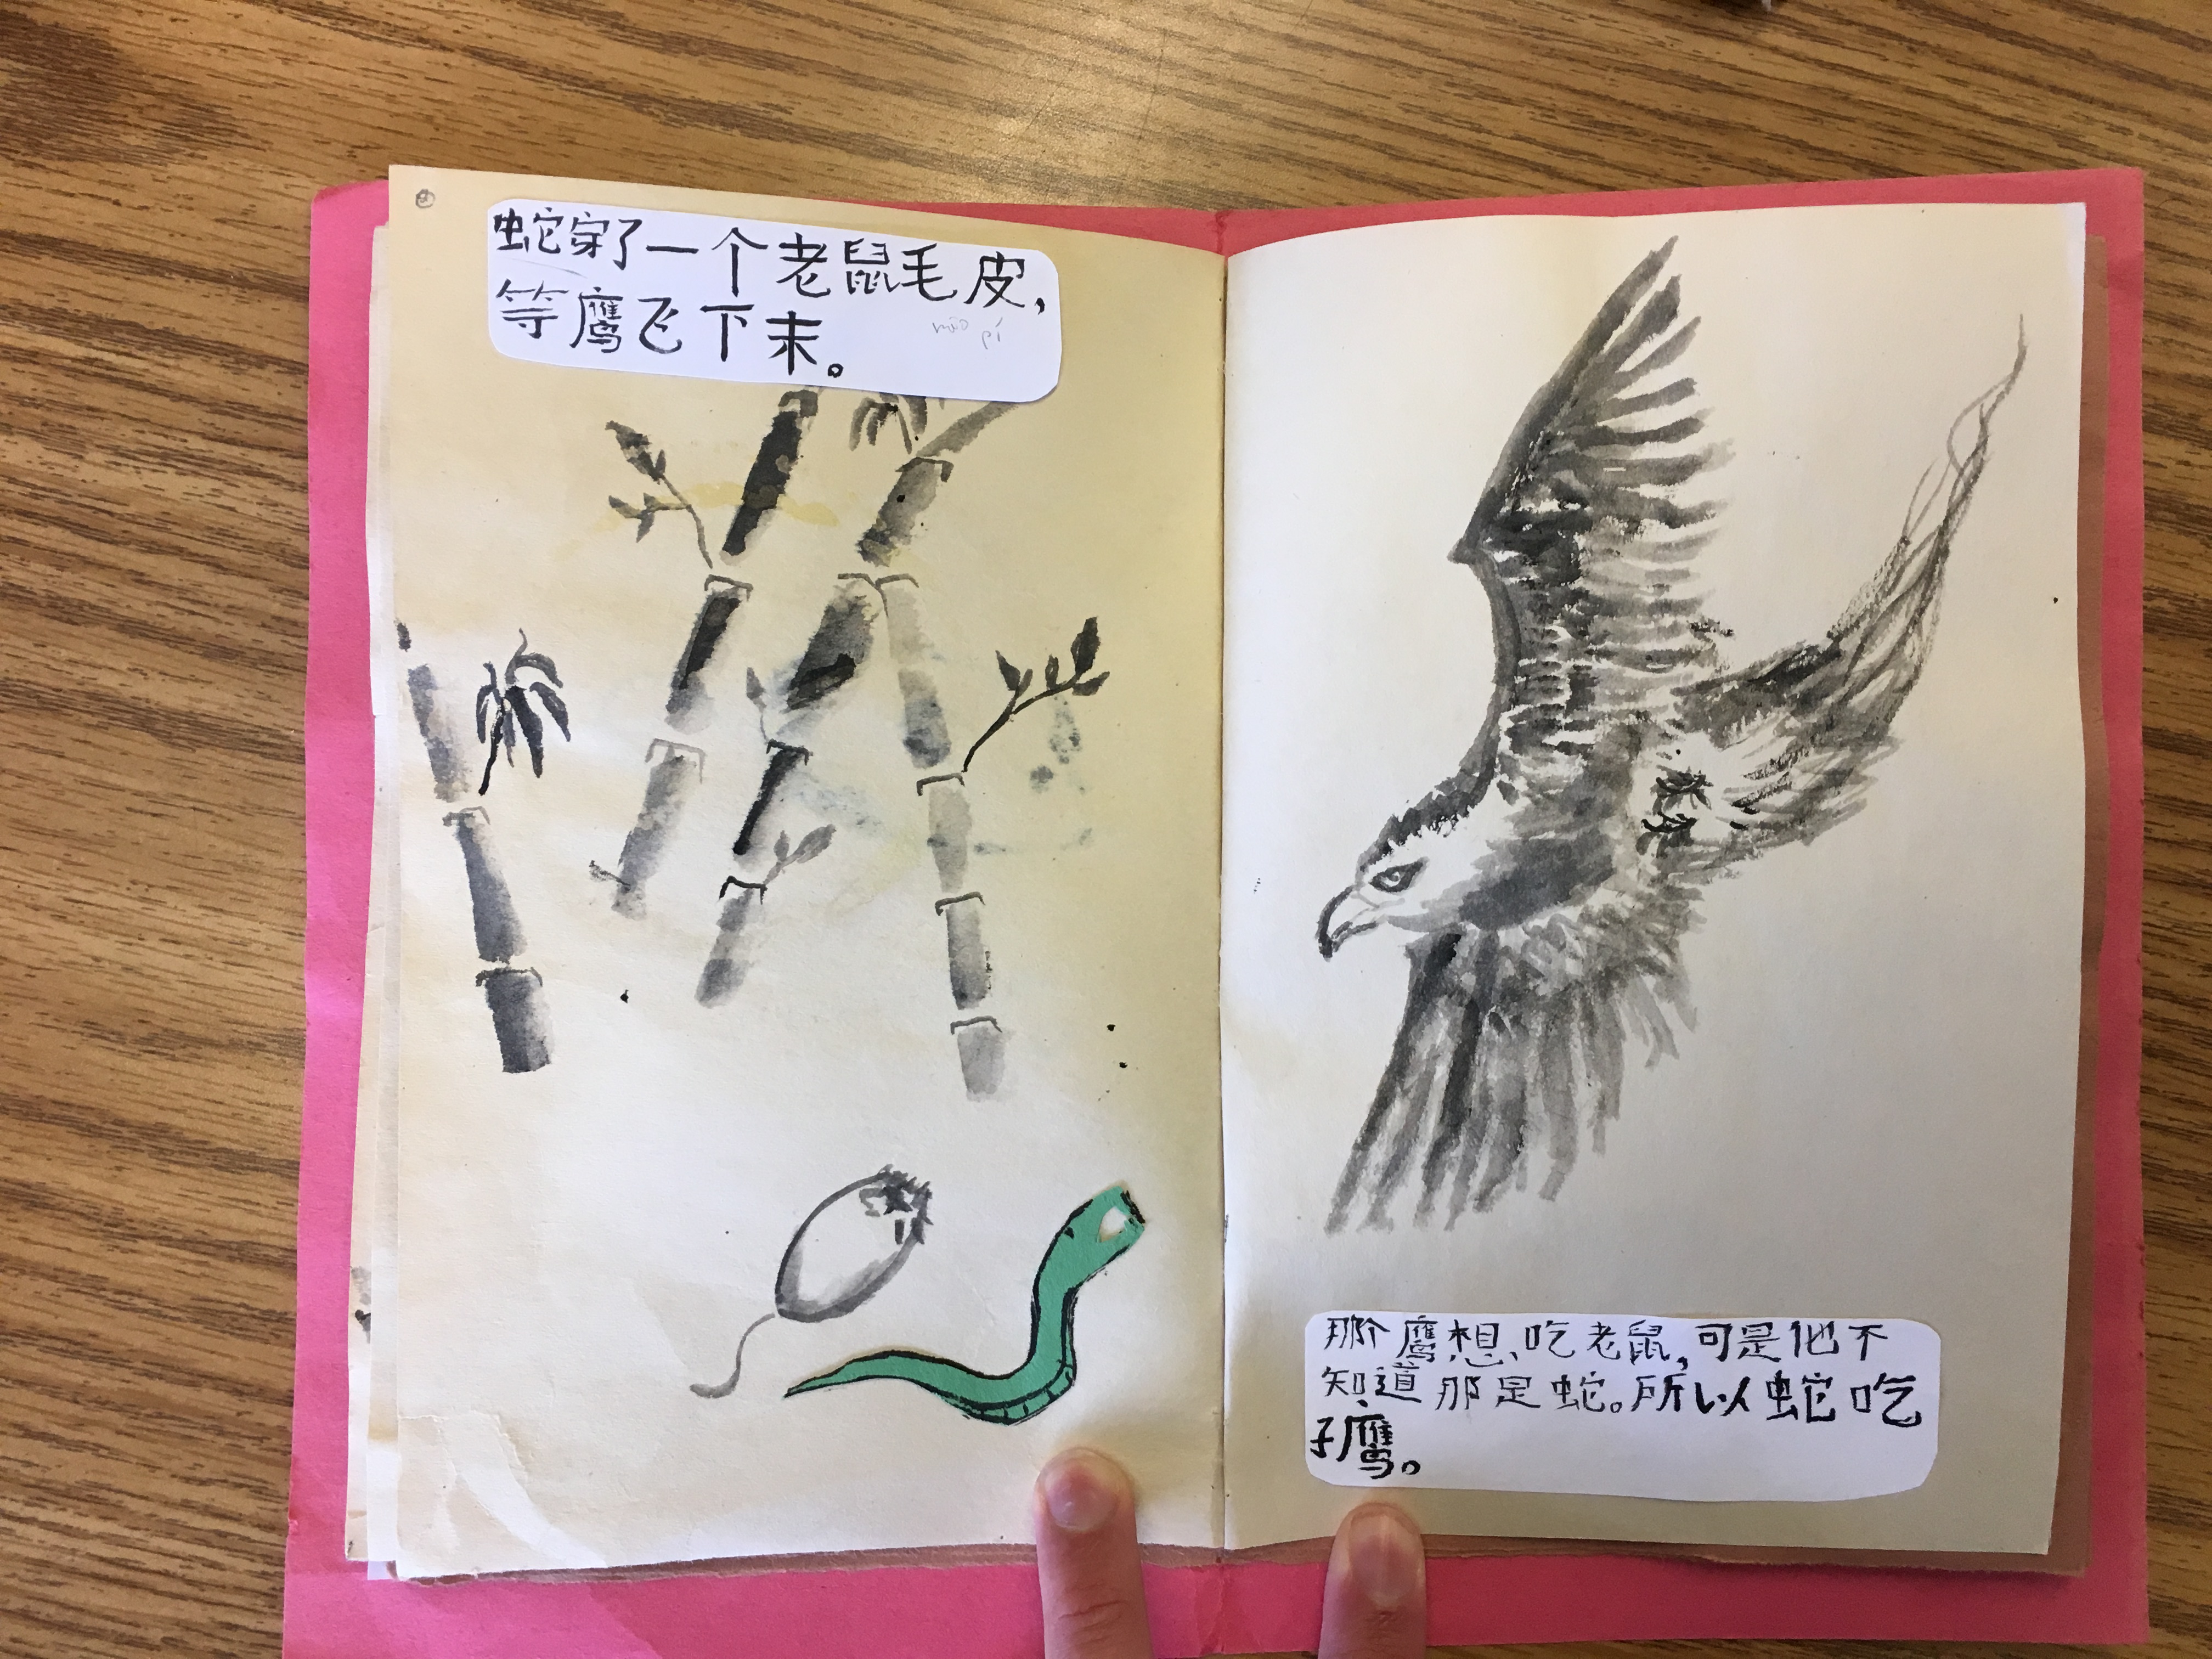 蛇穿了一个老鼠毛皮，
等鹰飞下来。
máo pí
那个鹰想吃老鼠，可是他不
知道那是蛇。所以蛇吃
了鹰。